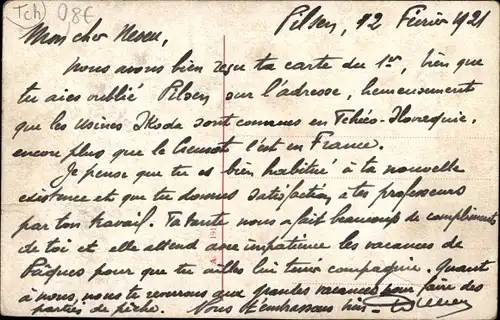 Tch 0,8€
Pilsen, 12 Février 1921
Mon cher Neveu,
Nous avons bien reçu ta carte du 1er, bien que
tu aies oublié Pilsen sur l'adresse, heureusement
que les usines Skoda sont connues en Tchéco-Slovaquie,
encore plus que le Creusot l'est en France.
Je pense que tu es bien habitué à ta nouvelle
existence et que tu donnes satisfaction à tes professeurs
par ton travail. Ta tante nous a fait beaucoup de compliments
de toi et elle attend avec impatience les vacances de
Pâques pour que tu ailles lui tenir compagnie. Quant
à nous, nous te reverrons aux grandes vacances pour faire des
parties de pêche. Nous t'embrassons bien